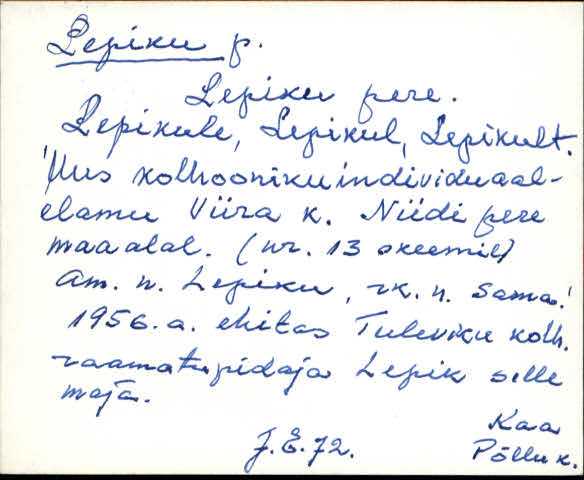 Lepiku p.
Lepiku pere.
Lepikule, Lepikul, Lepikult.
Uus kolhooniku individuaal-
elamu Viira k. Niidi pere
maaalal. (nr. 13 skeemil)
Am. n. Lepiku, rk. n. sama.
1956. a. ehitas Tuleviku kolh.
raamatupidaja Lepik selle
maja.
J.E.72.
Kaa
Põllu k.